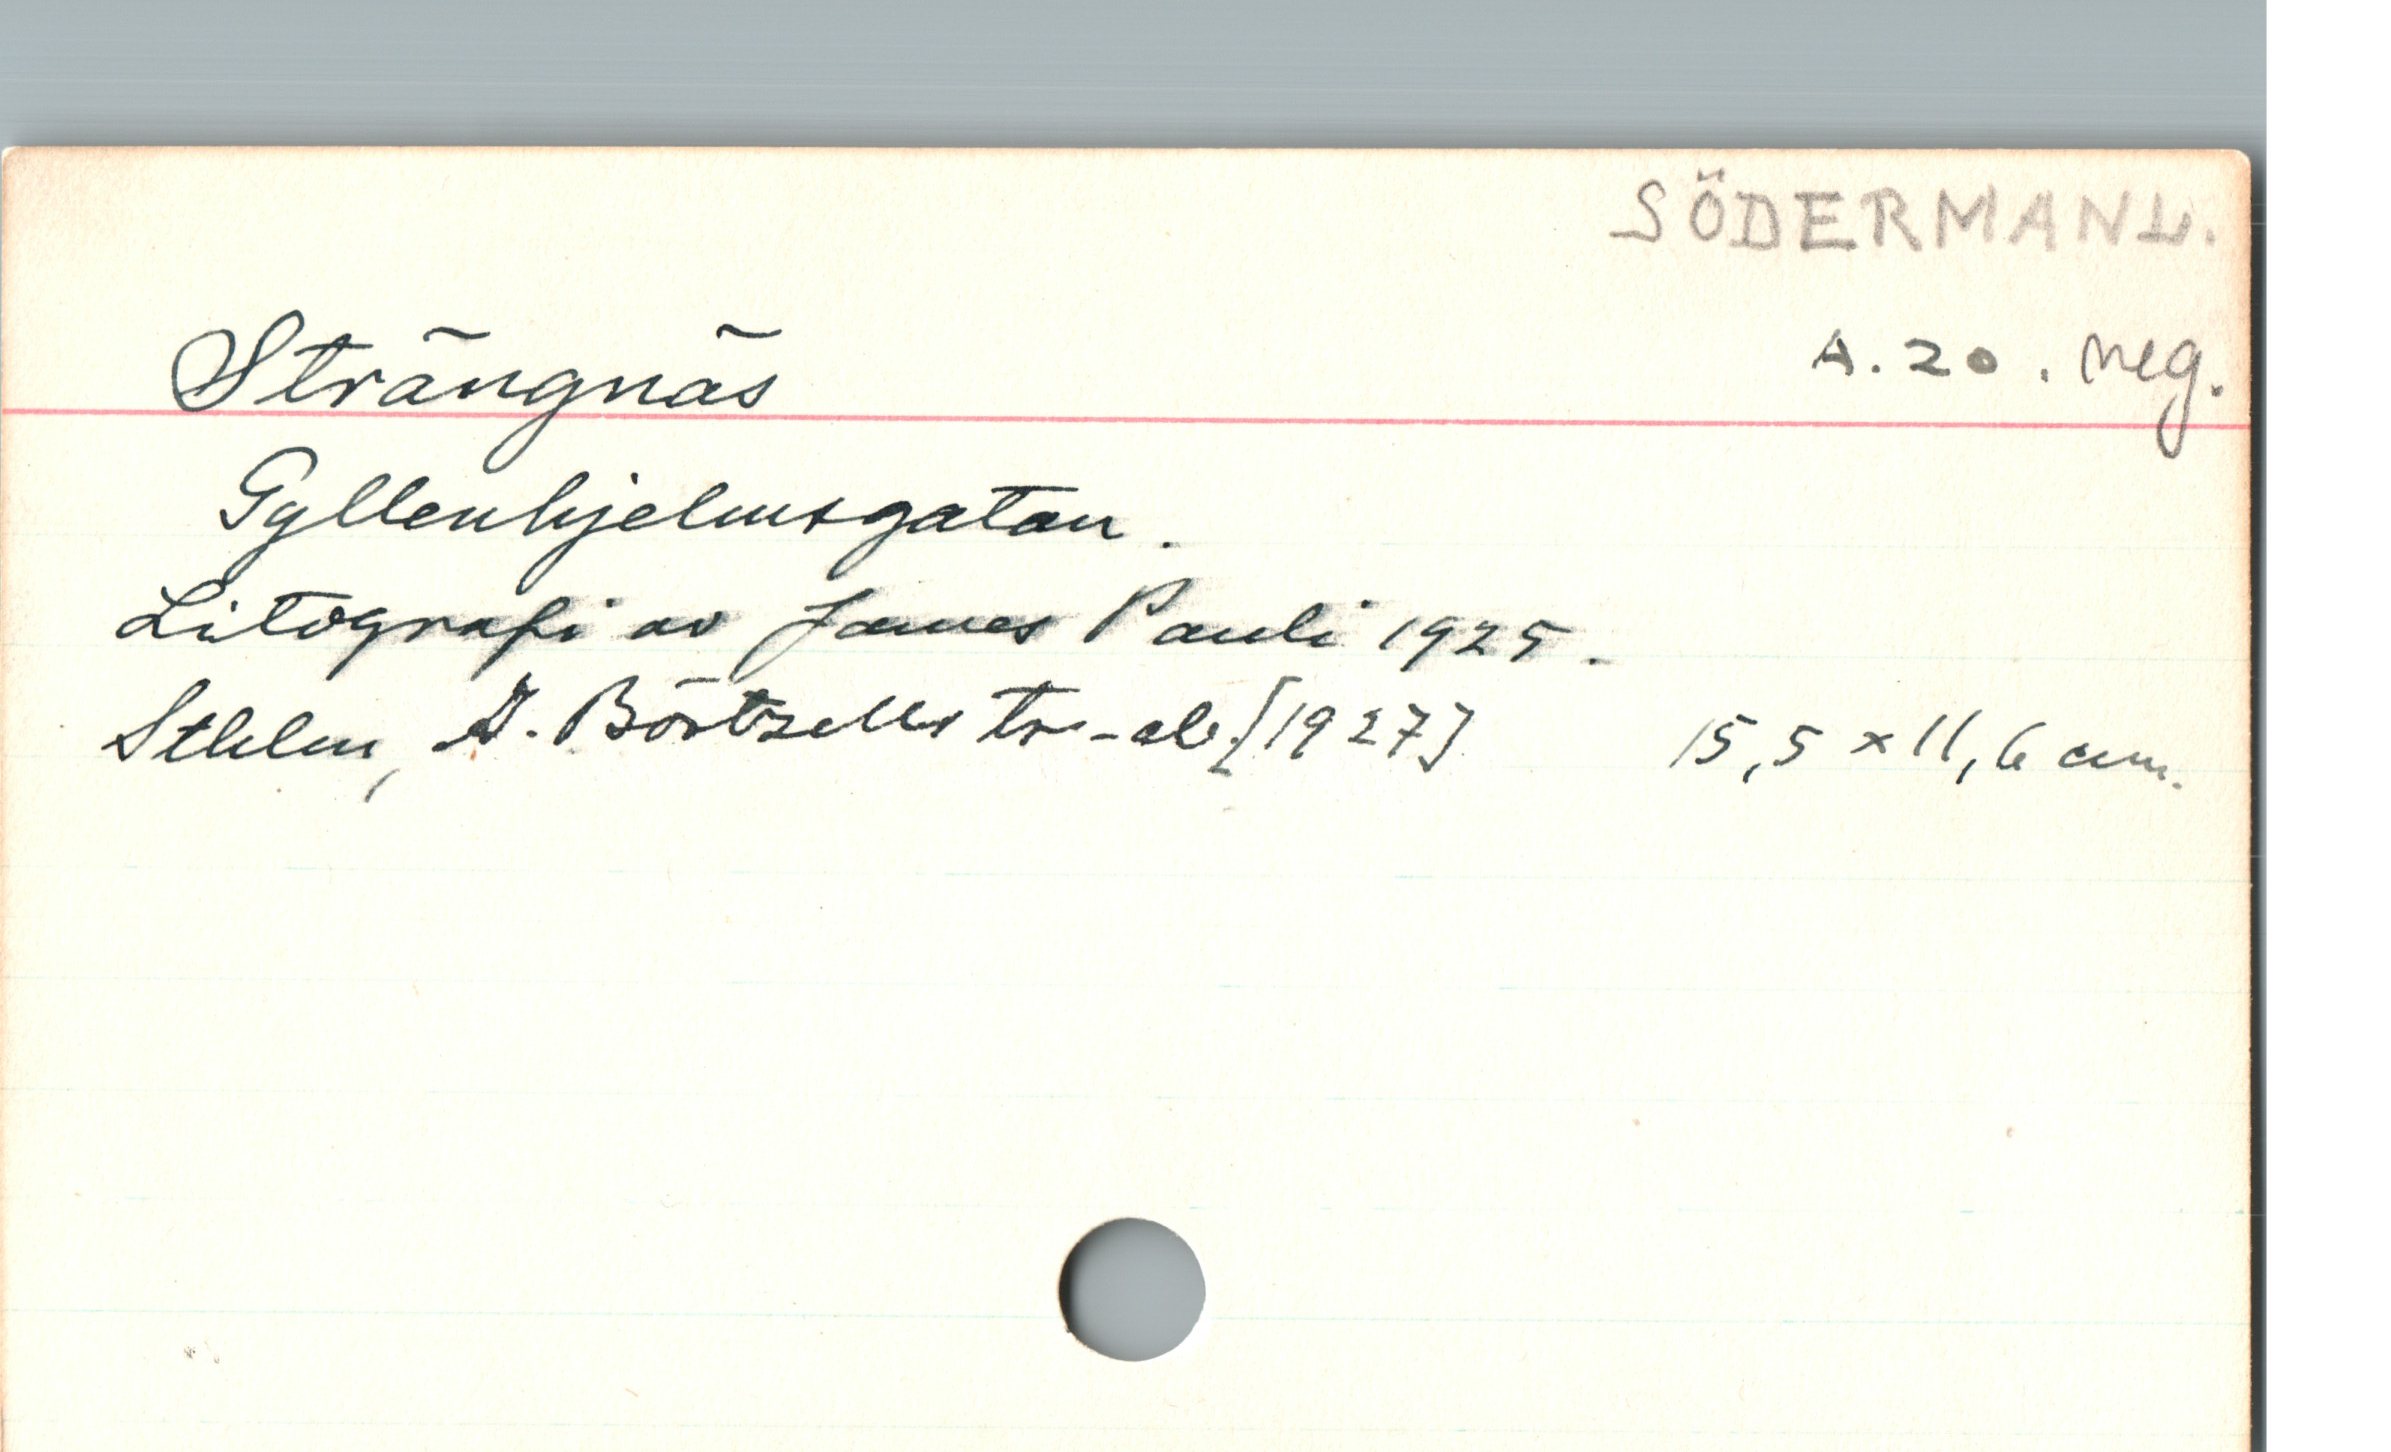 SÖDERMANL.
Strängnäs
A. 20. neg.
Gyllenhjelmsgatan.
Litografi av James Pauli 1925.
Sthlm, A. Börtzells tr.-ab. [1927] 15,5 x 11,6 cm.